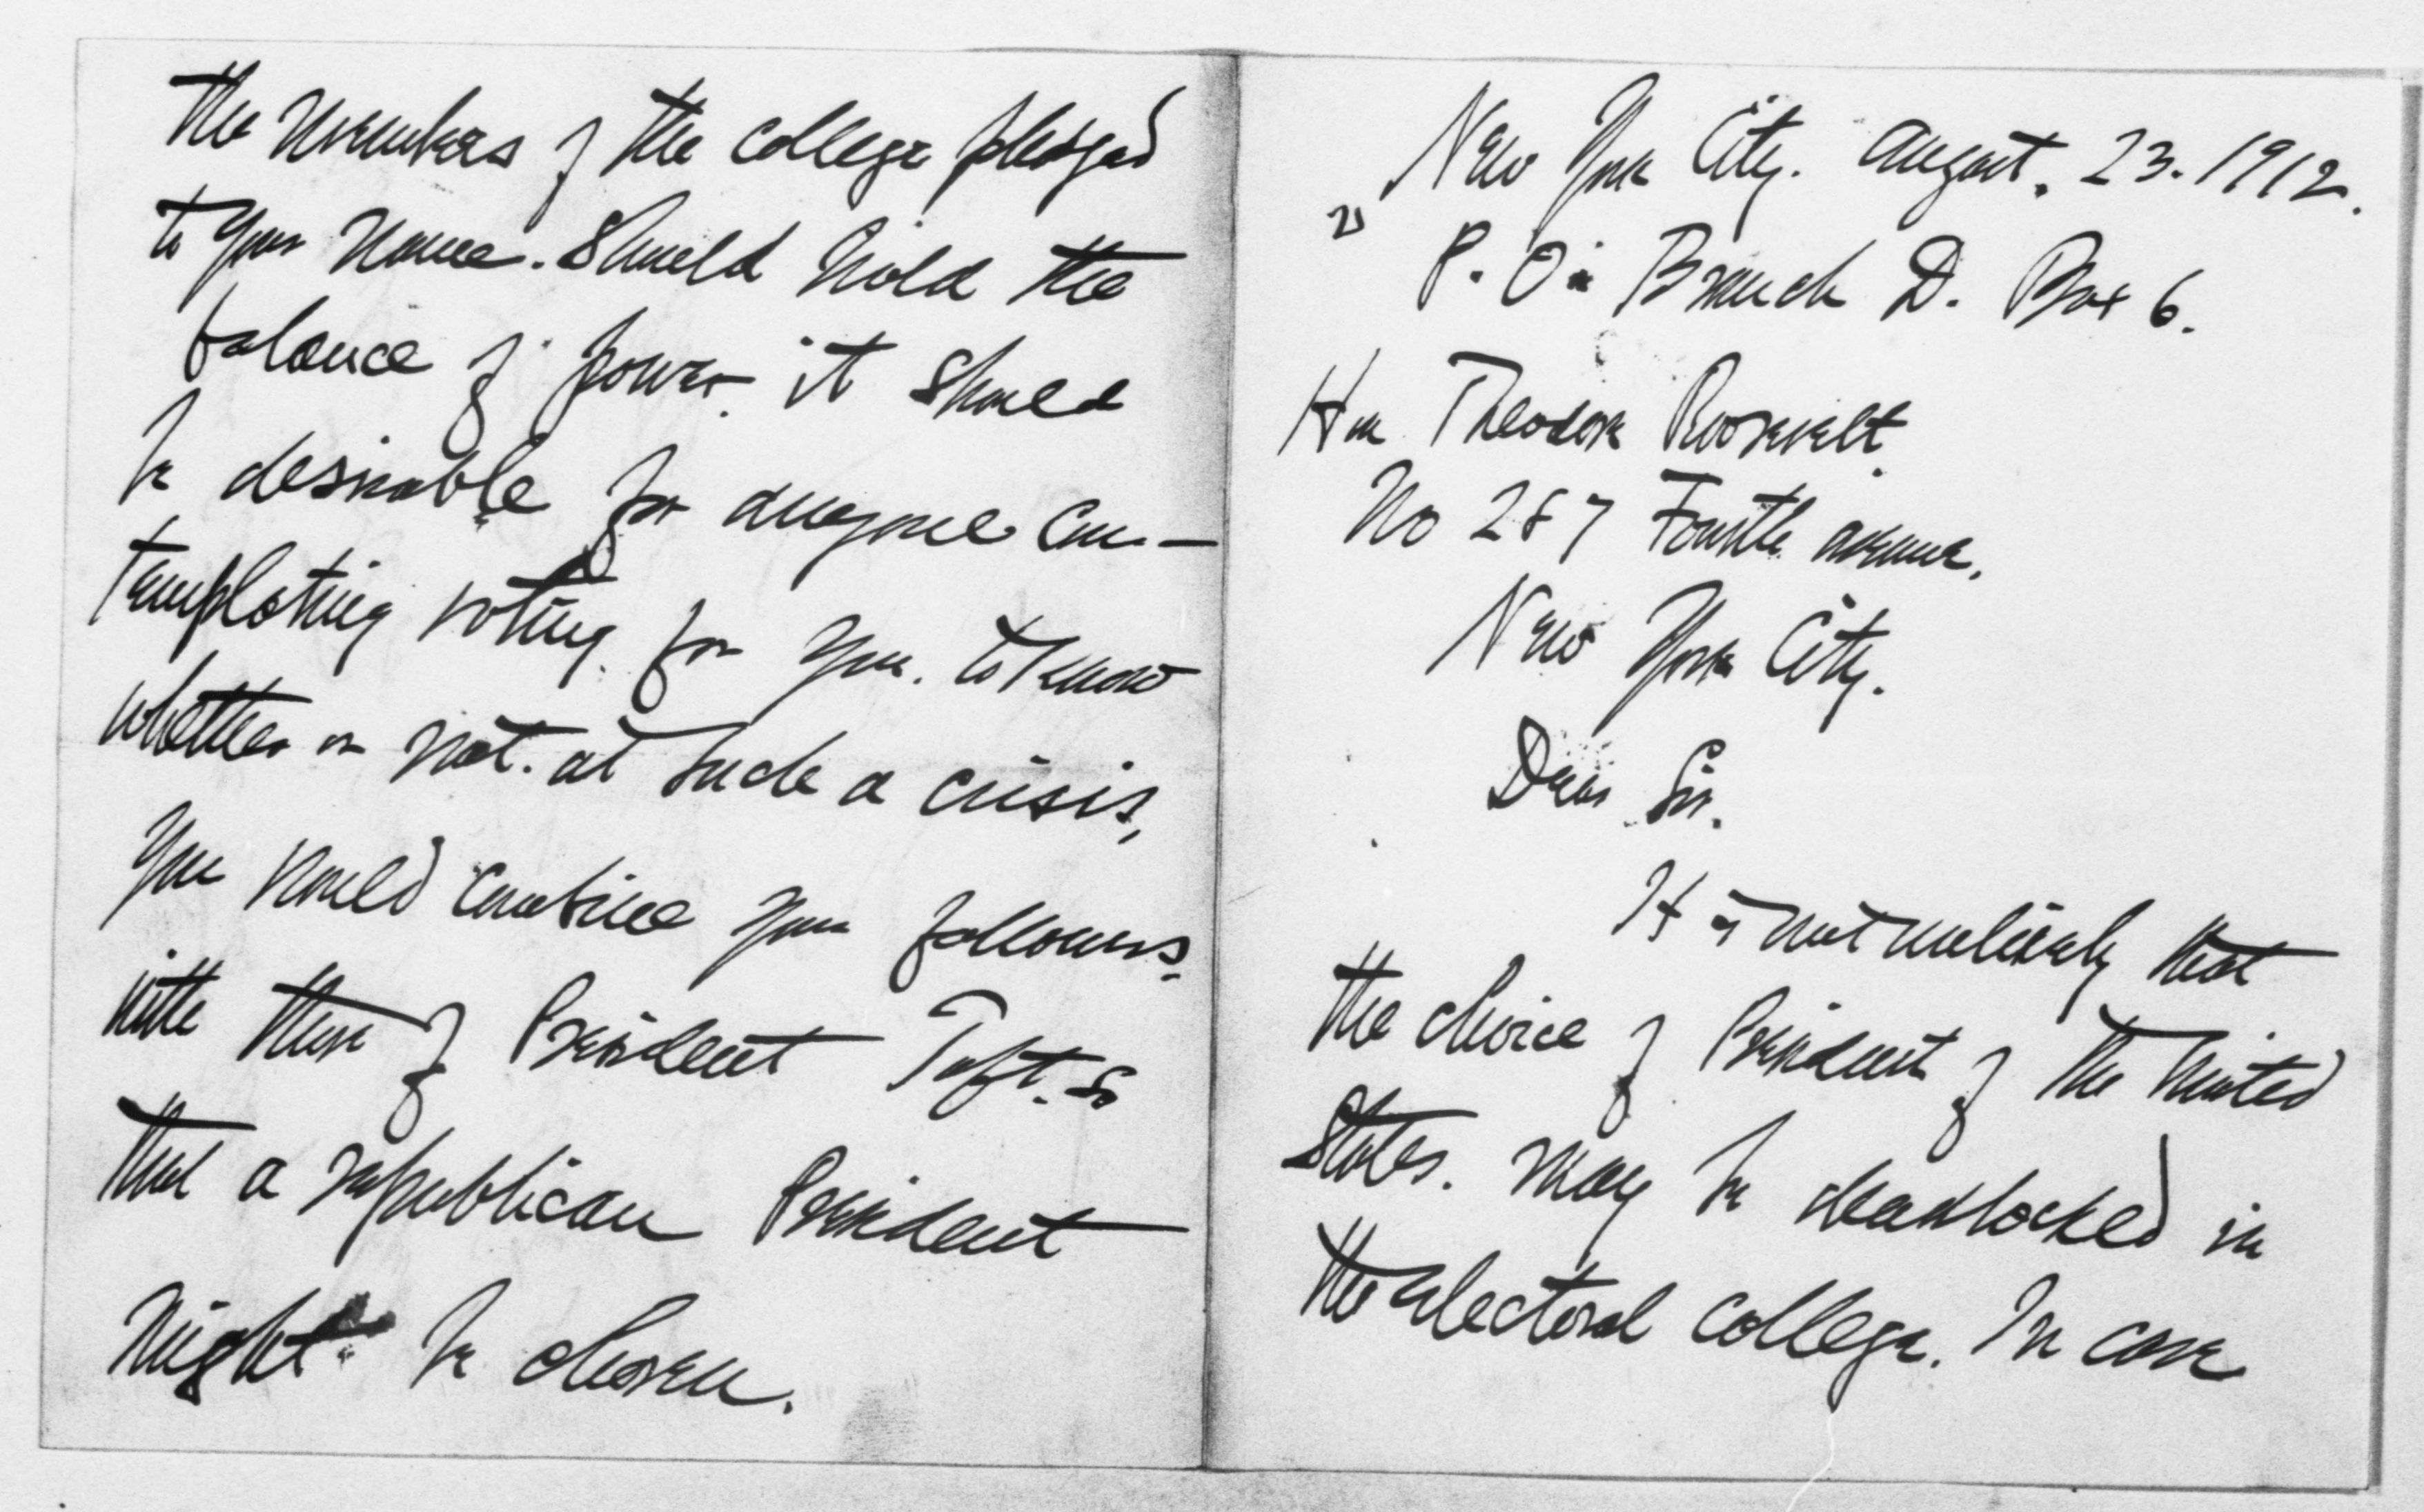 New York City. August. 23. 1912.
P. O. Branch D. Box 6.
Hon Theodore Roosevelt.
No 287 Fourth avenue.
New York City.
Dear Sir.
It is not unlikely that
the choice of President of the United
States. may be deadlocked in
the electoral college. In case
the members of the college pledged
to your name. should hold the
balance of power. it should
be desirable for anyone con-
templating voting for you. to know
whether or not. at such a crisis,
you would combine your followers.
with those of President Taft. so
that a republican President
might be chosen.